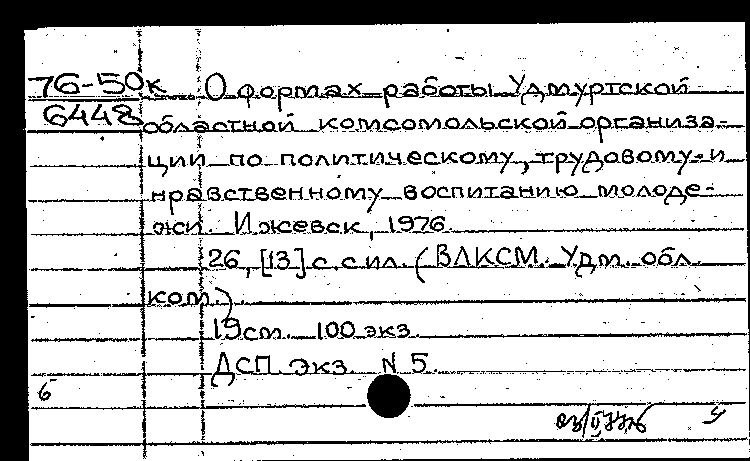 76-50к О формах работы Удмуртской
6448 областной комсомольской организа-
ции по политическому, трудовому и
нравственному воспитанию молоде-
жи. Ижевск, 1976.
26, [13] с. с ил. (ВЛКСМ. Удм. обл.
ком.).
19 см. 100 экз.
ДСП Экз. N 5.
б